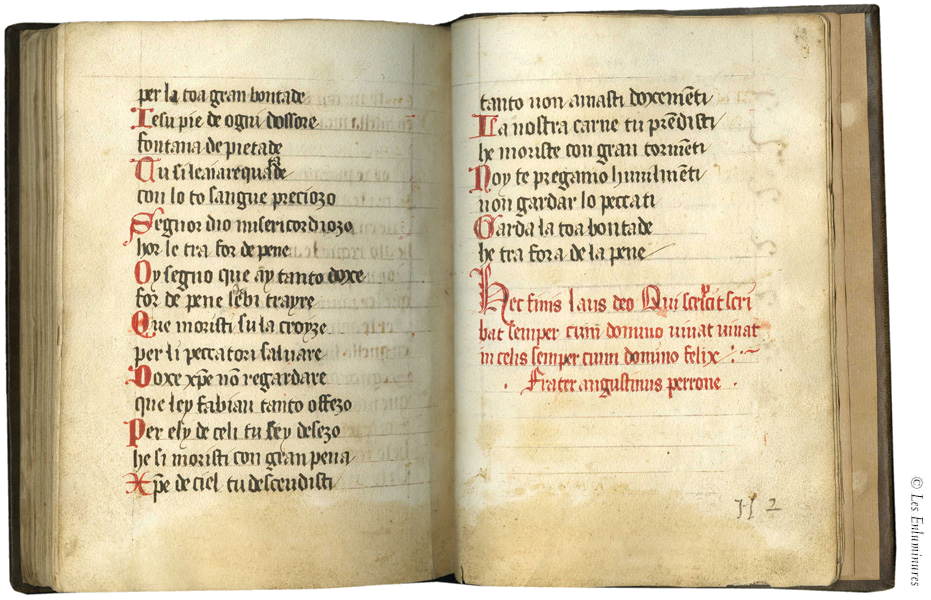 per la toa gran bontade
Iesu pie de ogni dossore
fontana de pietade
Tu si leaiarequade
con lo to sangue preciozo
Segnor dio misericordiozo
hor le tra for de pene
Oy segno que ay tanto doxe
for de pene sebi trayre
Que moristi su la croyze
per li peccatori salvare
Doxe xp̄e nō regardare
que ley fabian tanto offezo
Per esy de celi tu sey desezo
he si moristi con gran pena
Xp̄e de ciel tu descendisti
tanto non amasti doxemēti
La nostra carne tu prēdisti
he moriste con gran tormēti
Noy te pregamo humilmēti
non gardar lo peccati
Garda la toa bontade
he tra fora de la pene
Hec finis laus deo Qui scripcit scri
bat semper cum domino vivat vivat
in celis semper cum domino felix
Frater augustinus perrone
112
© Les Enluminures